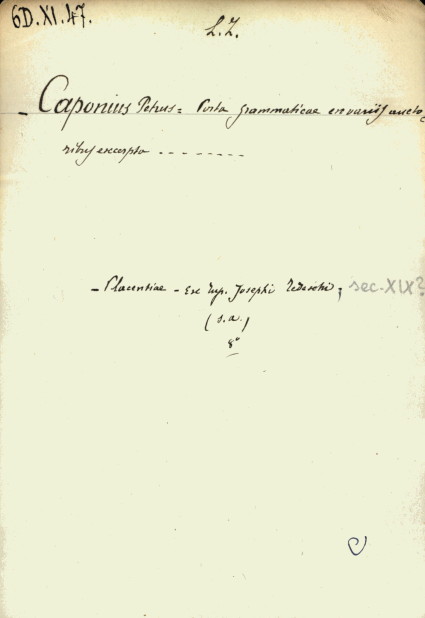 6D.XI.47.
L.Z.
- Caponius Petrus = Porta grammaticae ex variis aucto
ribus excerpta - - - - - - - -
- Placentiae - Ex Typ. Josephi Tedeschi, sec. XIX?
(s.a.)
8°